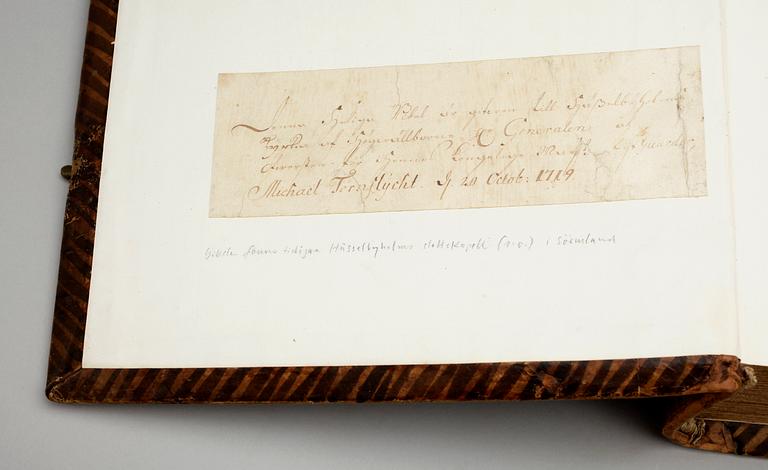 Denna Helige Bibel är gifwen till Hässelbyholms
kyrka af Högwälborne H Generalen och
öfwersten för Kongl. Maij:
Michael Törnflÿcht. d. 20 Octob: 1719
Bibeln fanns tidigare Hässelbyholms slottskapell (s.o.) i Sörmland